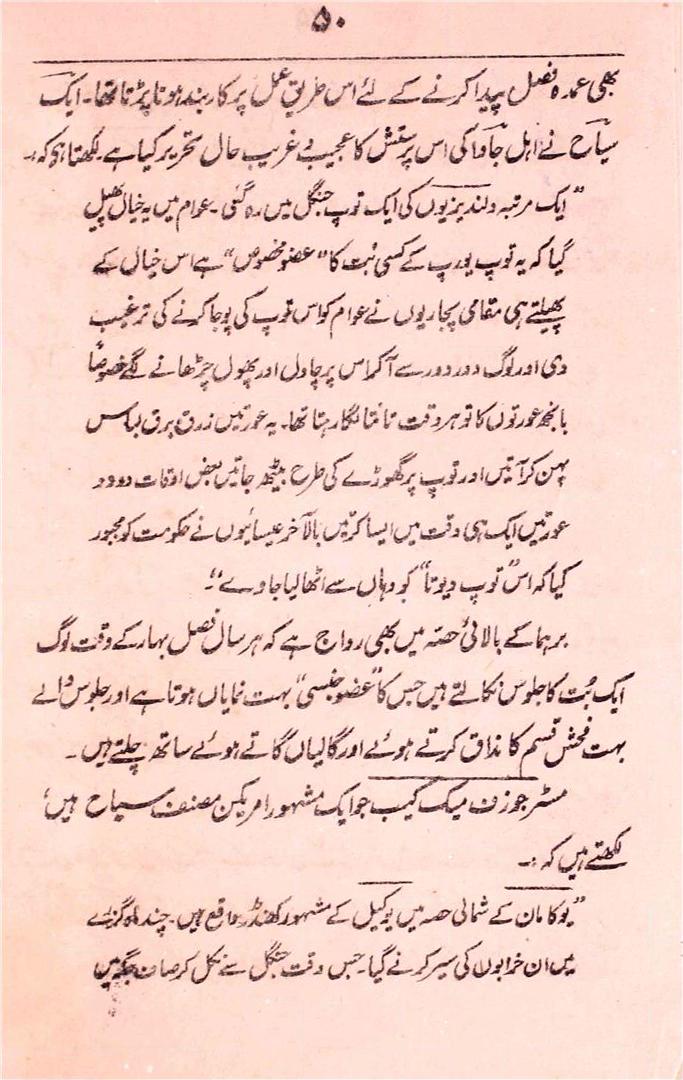 ۵۰
بھی عمدہ فصل پیدا کرنے کے لئے اس طریق عمل پر کاربند ہونا پڑتا تھا۔ ایک
سیاح نے اہل جاوا کی اس پرستش کا عجیب و غریب حال تحریر کیا ہے۔ لکھتا ہی کہ:۔
"ایک مرتبہ ولندیزیوں کی ایک توپ جنگل میں رہ گئی۔ عوام میں یہ خیال پھیل
گیا کہ یہ توپ یورپ کے کسی بُت کا "عضو مخصوص" ہے اس خیال کے
پھیلتے ہی مقامی پجاریوں نے عوام کو اس توپ کی پوجا کرنے کی ترغیب
دی اور لوگ دور دور سے آ کر اس پر چاول اور پھول چڑھانے لگے خصوصاً
بانجھ عورتوں کا تو ہر وقت تانتا لگا رہتا تھا۔ یہ عورتیں زرق برق لباس
پہن کر آتیں اور توپ پر گھوڑے کی طرح بیٹھ جاتیں بعض اوقات دو دو
عورتیں ایک ہی وقت میں ایسا کرتیں بالآخر عیسائیوں نے حکومت کو مجبور
کیا کہ اس "توپ دیوتا" کو وہاں سے اٹھا لیا جاوے"۔
برہما کے بالائی حصہ میں بھی رواج ہے کہ ہر سال فصل بہار کے وقت لوگ
ایک بُت کا جلوس نکالتے ہیں جس کا "عضو جنسی" بہت نمایاں ہوتا ہے اور جلوس والے
بہت فحش قسم کا مذاق کرتے ہوئے اور گالیاں گاتے ہوئے ساتھ چلتے ہیں۔
مسٹر جوزف میک کیب جو ایک مشہور امریکن مصنف سیاح ہیں،
لکھتے ہیں کہ:۔
"یوکاٹان کے شمالی حصہ میں یوکیل کے مشہور کھنڈر واقع ہیں۔ چند ماہ گزرے
میں ان خرابوں کی سیر کرنے گیا۔ جس وقت جنگل سے نکل کر صاف جگہ میں